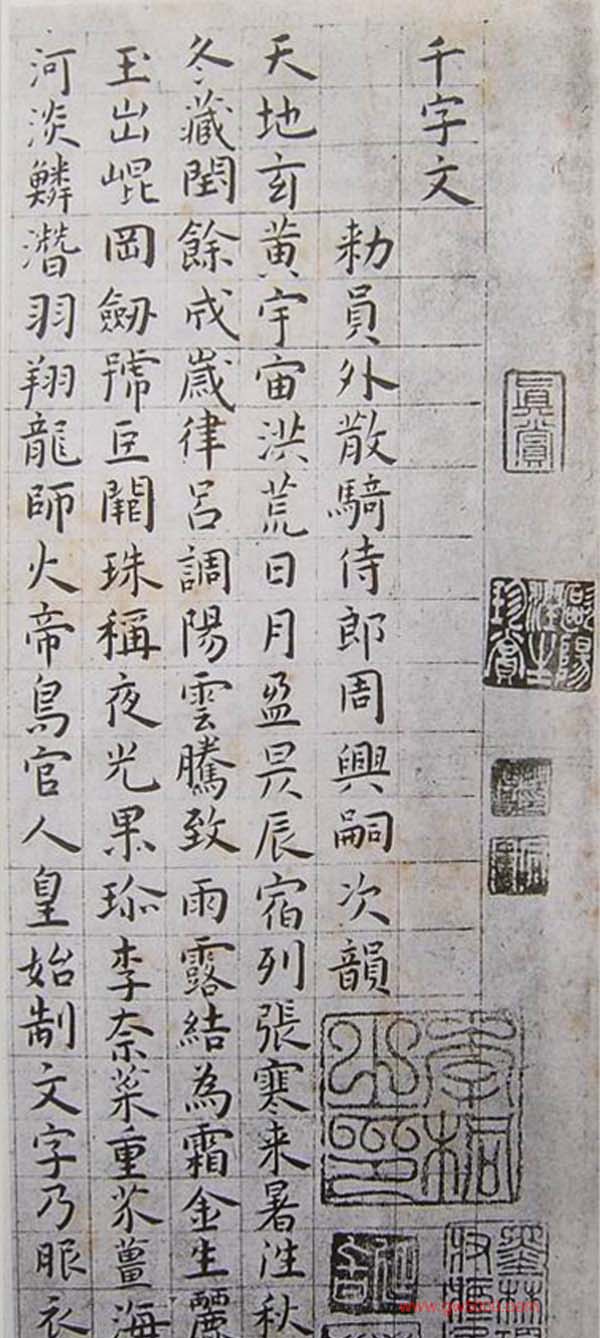 眞賞
千字文
勑員外散騎侍郎周興嗣次韻
天地玄黄宇宙洪荒日月盈昃辰宿列張寒来暑往秋
冬藏閏餘成歲律呂調陽雲騰致雨露結為霜金生麗
玉出崐岡劒號巨闕珠稱夜光果珎李柰菜重芥薑海
河淡鱗潛羽翔龍師火帝鳥官人皇始制文字乃服衣